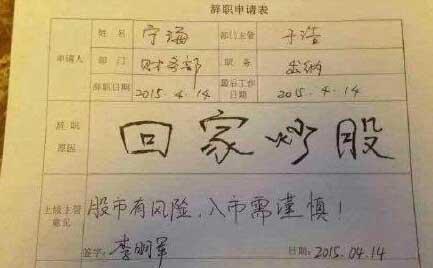 辞职申请表
申请人 姓名 宁海 部门主管 于浩
部门 财务部 职务 出纳
辞职日期 2015.4.14 最后工作日期 2015.4.14
辞职原因 回家炒股
上级主管意见 股市有风险、入市需谨慎！
签字: 李明军 日期: 2015.04.14